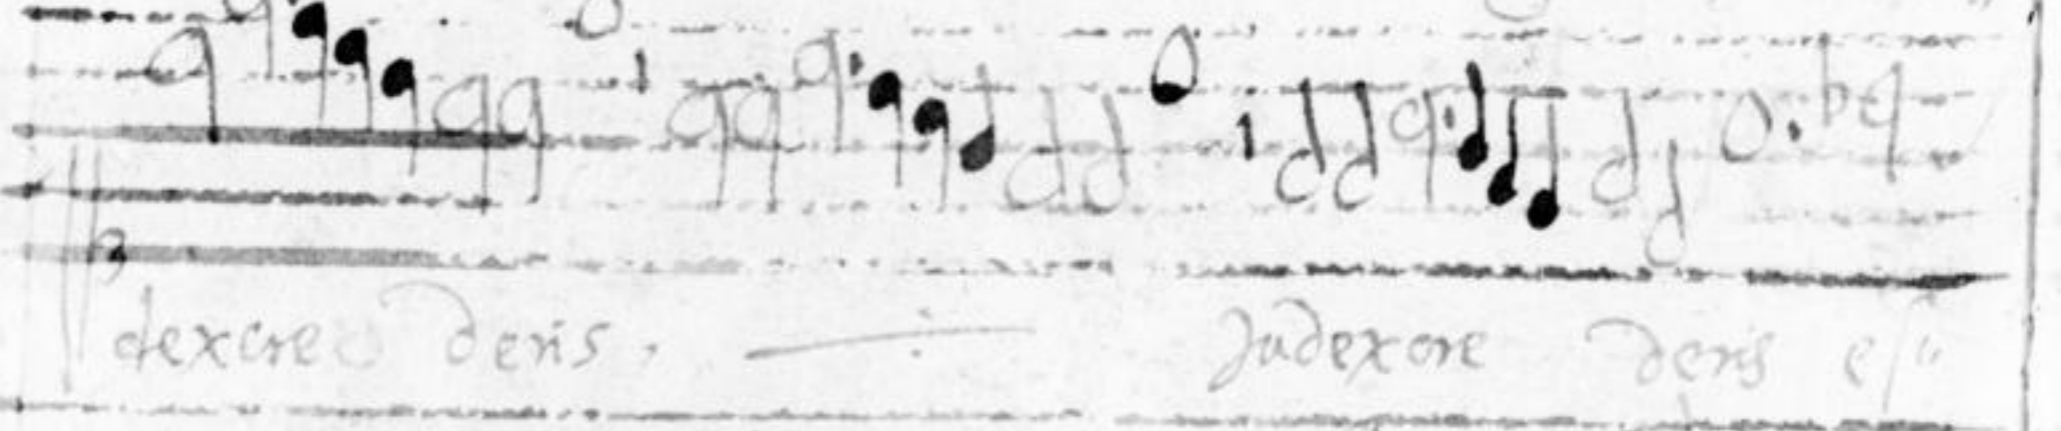 dexcre deris, Judexcre deris es